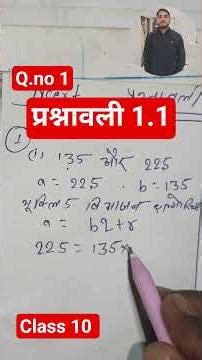 Q.no 1
प्रश्नावली 1.1
①
(i) 135 और 225
a = 225 . b = 135
यूक्लिड विभाजन
a = bq+r
225 = 135×
Class 10